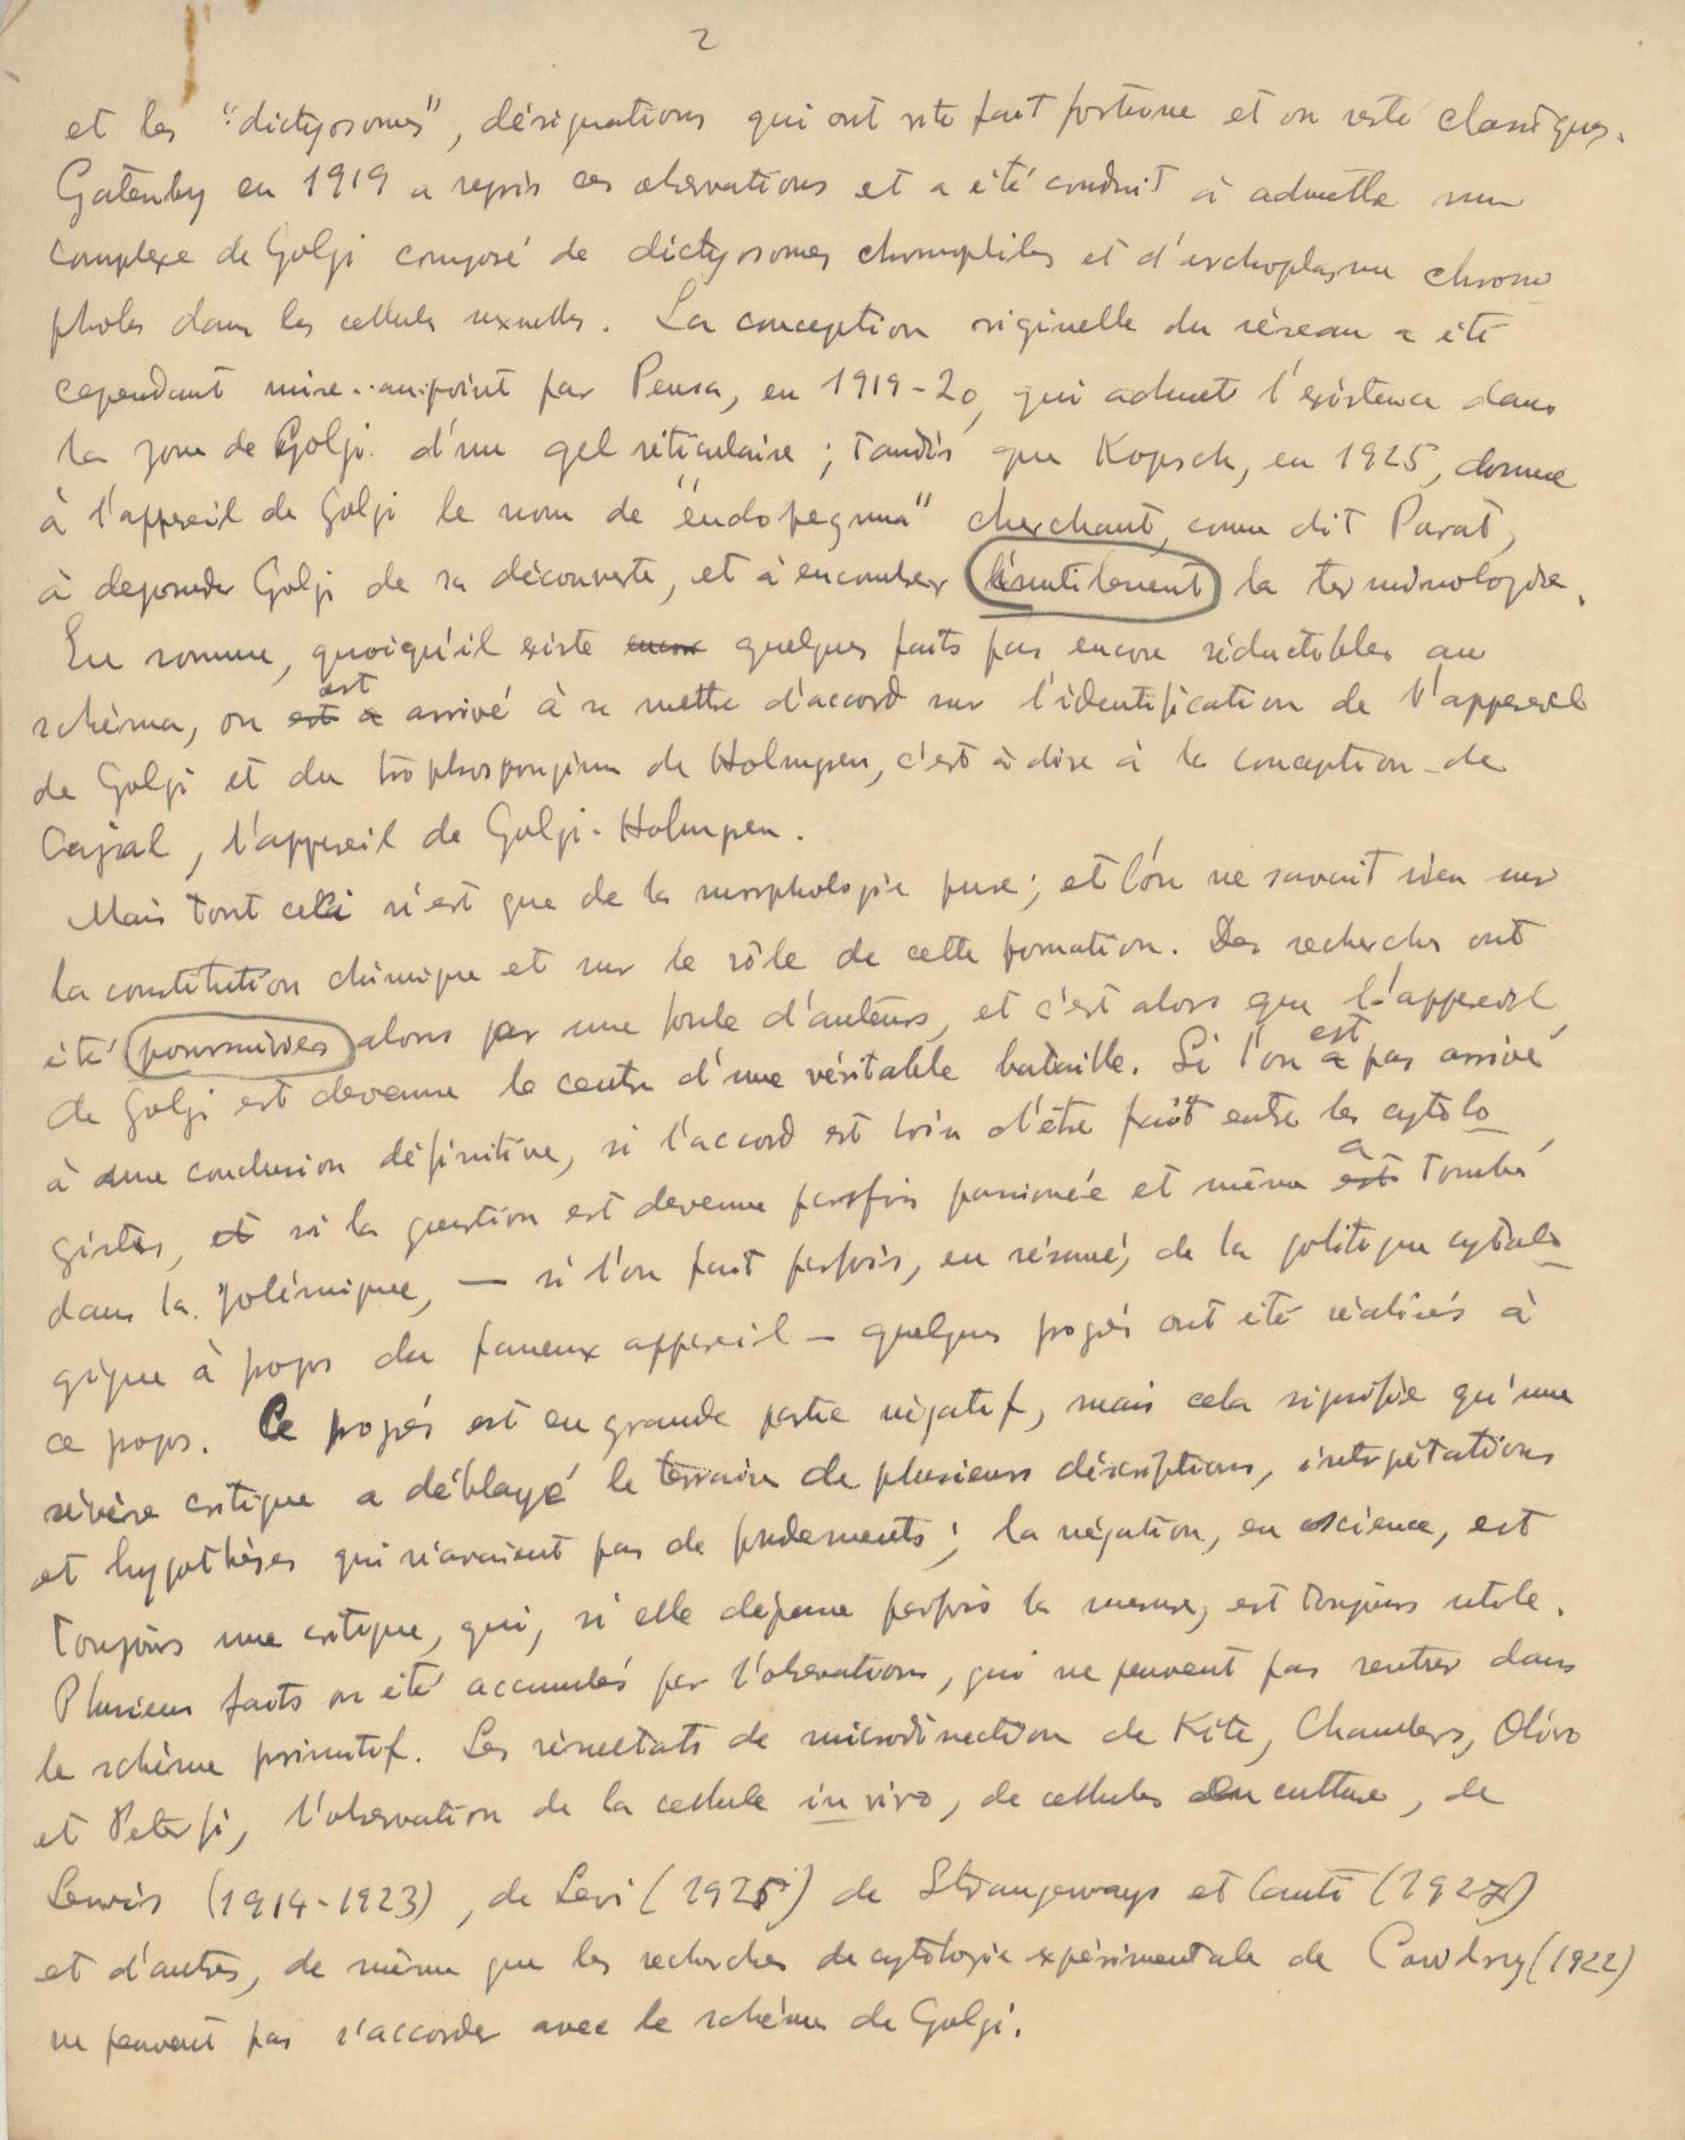 2
et les "dictyosomes", désignations qui ont vite fait fortune et on resté classiques.
Gatenby en 1919 a repris ces observations et a été conduit à admettre un
complexe de Golgi composé de dictyosomes chromophiles et d'archoplasme chromo
phobes dans les cellules sexuelles. La conception originelle du réseau a été
cependant mise au point par Pensa, en 1919-20, qui admet l'existence dans
la zone de Golgi d'un gel réticulaire ; tandis que Kopsch, en 1925, donne
à l'appareil de Golgi le nom de "endopegma" cherchant, comme dit Parat,
à déposséder Golgi de sa découverte, et à encombrer inutilement la terminologie.
En somme, quoiqu'il existe encore quelques faits pas encore réductibles au
schéma, on est a est arrivé à se mettre d'accord sur l'identification de l'appareil
de Golgi et du trophospongium de Holmgren, c'est à dire à la conception de
Cajal, l'appareil de Golgi-Holmgren.
Mais tout cela n'est que de la morphologie pure; et l'on ne savait rien sur
la constitution chimique et sur le rôle de cette formation. Des recherches ont
été poursuivies alors par une foule d'auteurs, et c'est alors que l'appareil
de Golgi est devenu le centre d'une véritable bataille. Si l'on a est pas arrivé
à une conclusion définitive, si l'accord est loin d'être fait entre les cytolo
gistes, et si la question est devenue parfois passionée et même est a tombé
dans la polémique, — si l'on fait parfois, en résumé, de la politique cytolo
gique à propos du fameux appareil — quelques progrés ont été réalisés à
ce propos. Ce progrés est en grande partie négatif, mais cela signifie qu'une
sévère critique a déblayé le terrain de plusieurs déscriptions, interprétations
et hypothèses qui n'avaient pas de fondements ; la négation, en science, est
toujours une critique, qui, si elle dépasse parfois la mesure, est toujours utile.
Plusieurs faits on été accumulés par l'observations, qui ne peuvent pas rentrer dans
le schème primitif. Les résultats de microdissection de Kite, Chambers, Olivo
et Peterfi, l'observation de la cellule in vivo, de cellules en culture, de
Lewis (1914-1923), de Levi (1925) de Strangeways et Canti (1927)
et d'autres, de même que les recherches de cytologie expérimentale de Cowdry (1922)
ne peuvent pas s'accorder avec le schéma de Golgi.